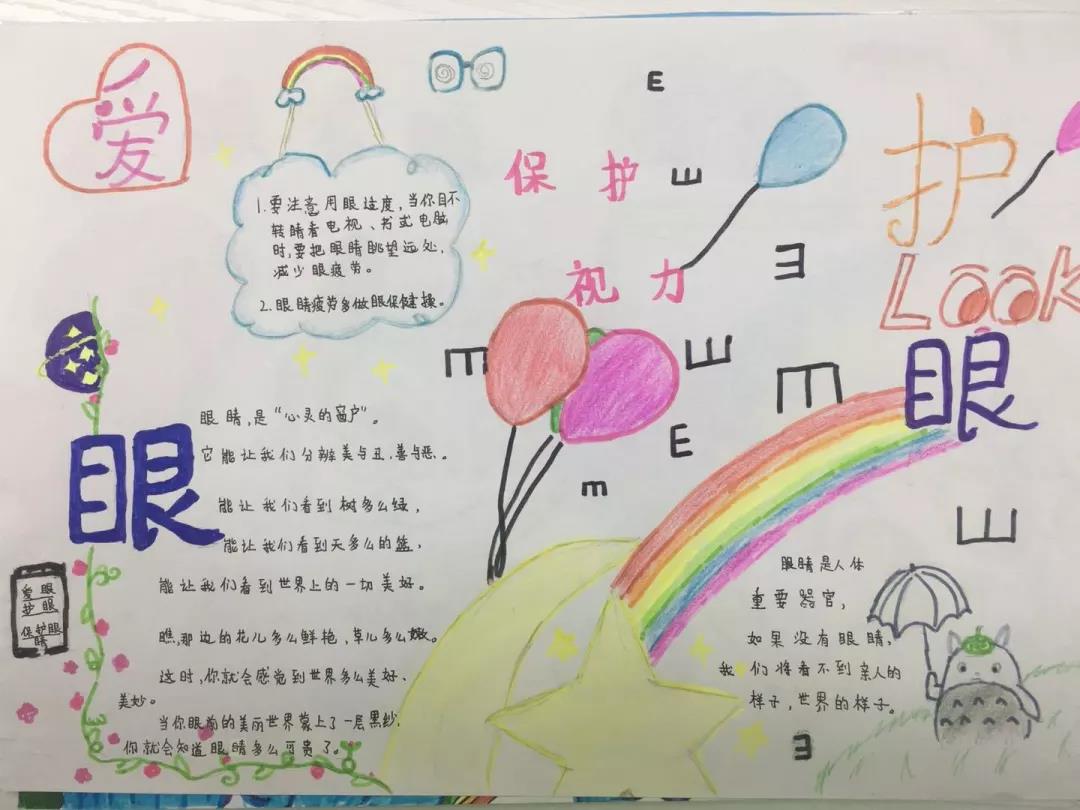 爱
眼
护
Look
眼
保护
视力
E
E
1.要注意用眼过度,当你目不
转睛看电视、书或电脑
时,要把眼睛眺望远处,
减少眼疲劳。
2.眼睛疲劳多做眼保健操。
眼睛,是“心灵的窗户”。
它能让我们分辨美与丑、善与恶、。
能让我们看到树多么绿,
能让我们看到天多么的篮,
能让我们看到世界上的一切美好。
瞧,那边的花儿多么鲜艳,草儿多么嫩。
这时,你就会感觉到世界多么美好、
美妙。
当你眼前的美丽世界蒙上了一层黑纱,
你就会知道眼睛多么可贵了。
爱眼
护眼
保护眼
睛
眼睛是人体
重要器官,
如果没有眼睛,
我们将看不到亲人的
样子,世界的样子。